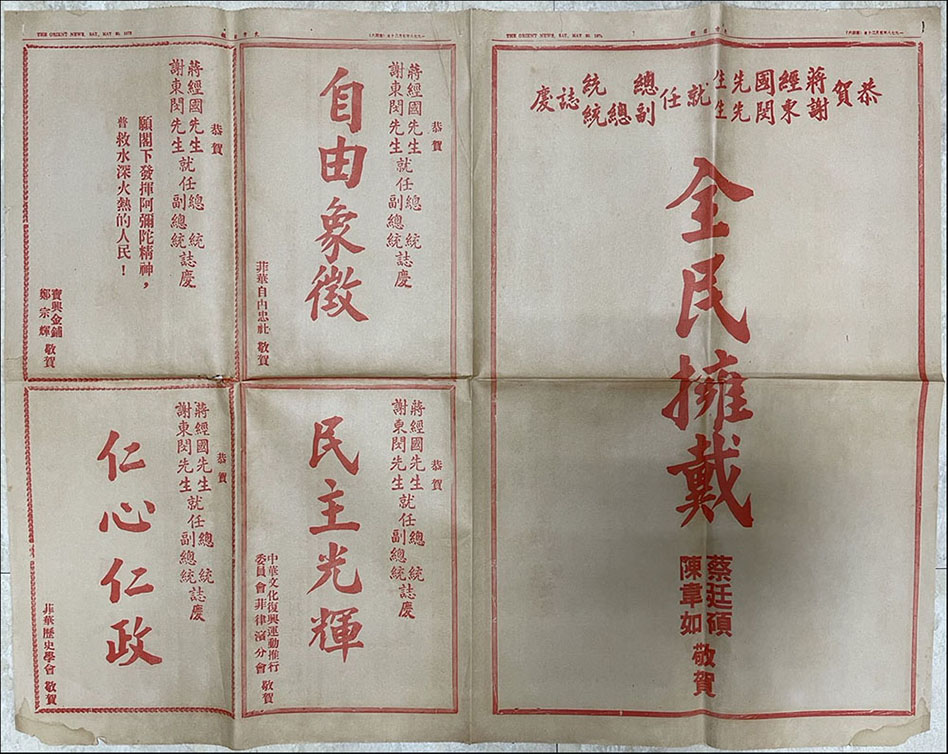 THE ORIENT NEWS, SAT., MAY 20, 1978
THE ORIENT NEWS, SAT., MAY 20, 1978
恭賀
蔣經國先生
謝東閔先生
就任
總統
副總統
誌慶
全民擁戴
蔡廷碩
陳章如
敬賀
恭賀
蔣經國先生
謝東閔先生
就任
總統
副總統
誌慶
自由象徵
菲華自由忠社 敬賀
恭賀
蔣經國先生
謝東閔先生
就任
總統
副總統
誌慶
願閣下發揮阿彌陀精神,
普救水深火熱的人民!
寶興金鋪
鄭宗輝
敬賀
恭賀
蔣經國先生
謝東閔先生
就任
總統
副總統
誌慶
民主光輝
中華文化復興運動推行
委員會菲律濱分會
敬賀
恭賀
蔣經國先生
謝東閔先生
就任
總統
副總統
誌慶
仁心仁政
菲華歷史學會 敬賀